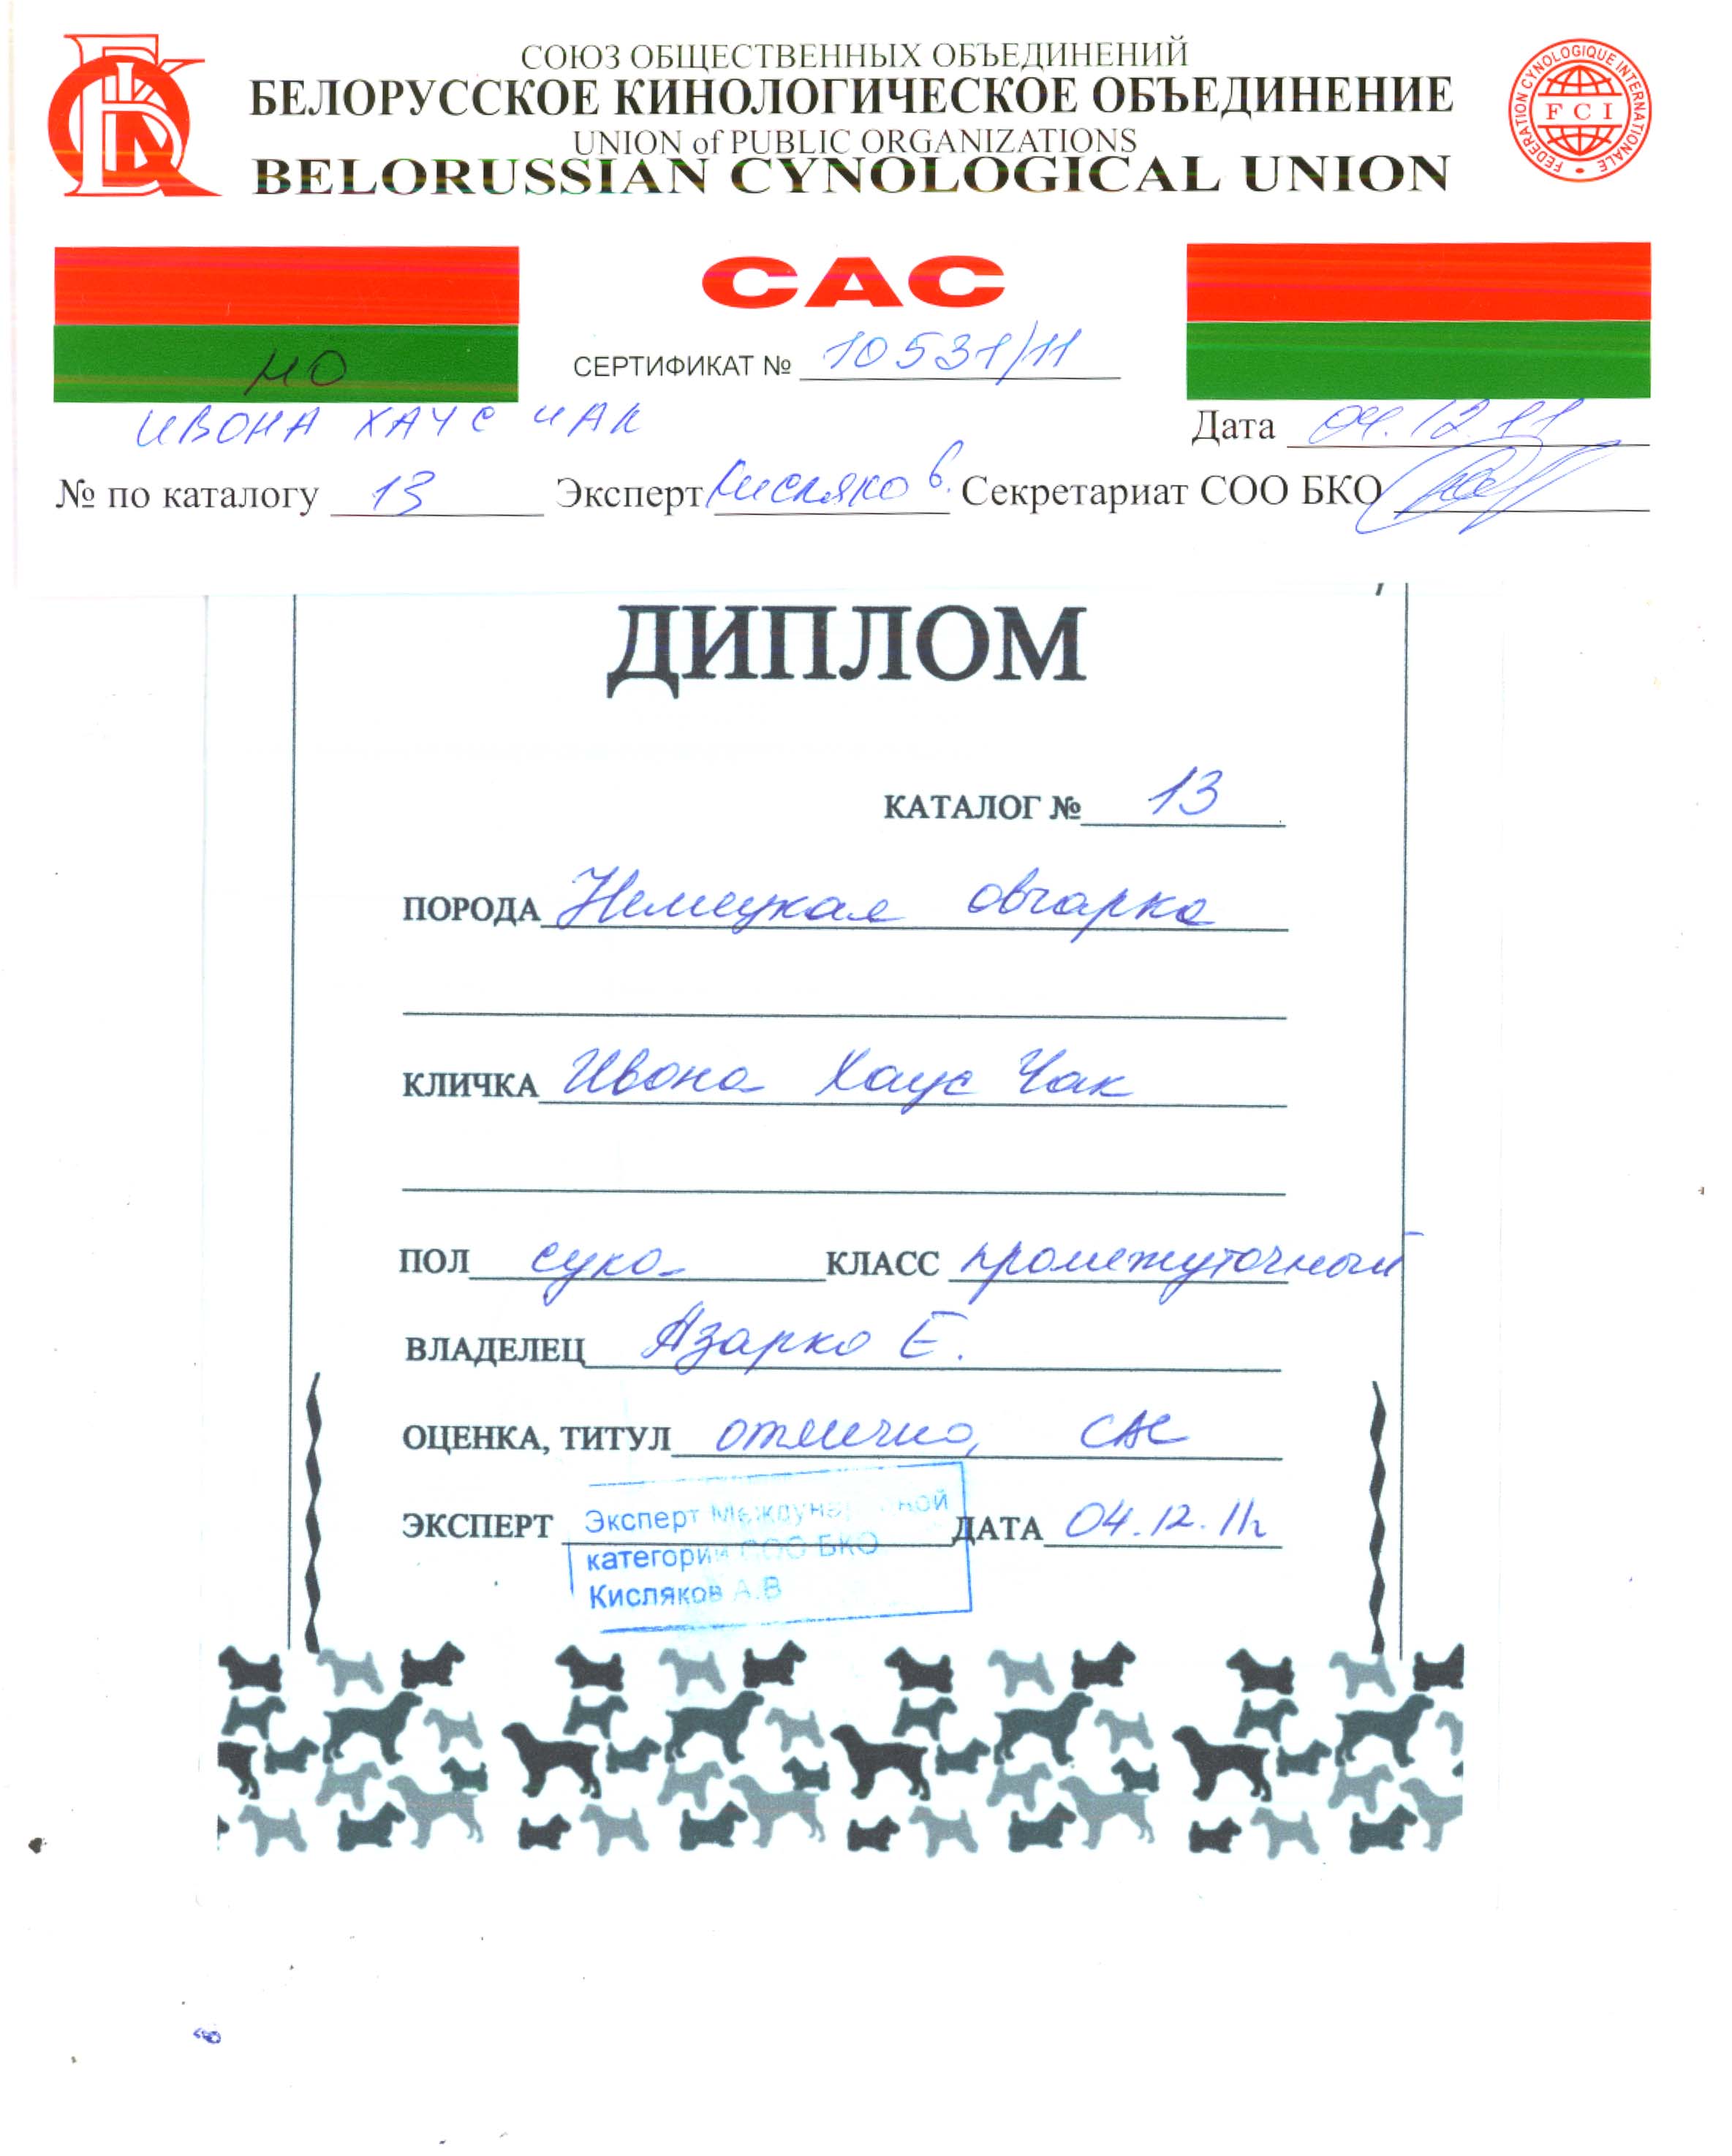 СОЮЗ ОБЩЕСТВЕННЫХ ОБЪЕДИНЕНИЙ
БЕЛОРУССКОЕ КИНОЛОГИЧЕСКОЕ ОБЪЕДИНЕНИЕ
UNION of PUBLIC ORGANIZATIONS
BELORUSSIAN CYNOLOGICAL UNION
FEDERATION CYNOLOGIQUE INTERNATIONALE
FCI
CAC
НО
СЕРТИФИКАТ № 10531/11
ИВОНА ХАУС ЧАК
Дата 04.12.11
№ по каталогу 13 Эксперт Кисляков. Секретариат СОО БКО
ДИПЛОМ
КАТАЛОГ № 13
ПОРОДА Немецкая овчарка
КЛИЧКА Ивона Хаус Чак
ПОЛ сука КЛАСС промежуточный
ВЛАДЕЛЕЦ Азарко Е.
ОЦЕНКА, ТИТУЛ отлично, САС
ЭКСПЕРТ Эксперт Международной ДАТА 04.12.11г
категории СОО БКО
Кисляков А.В